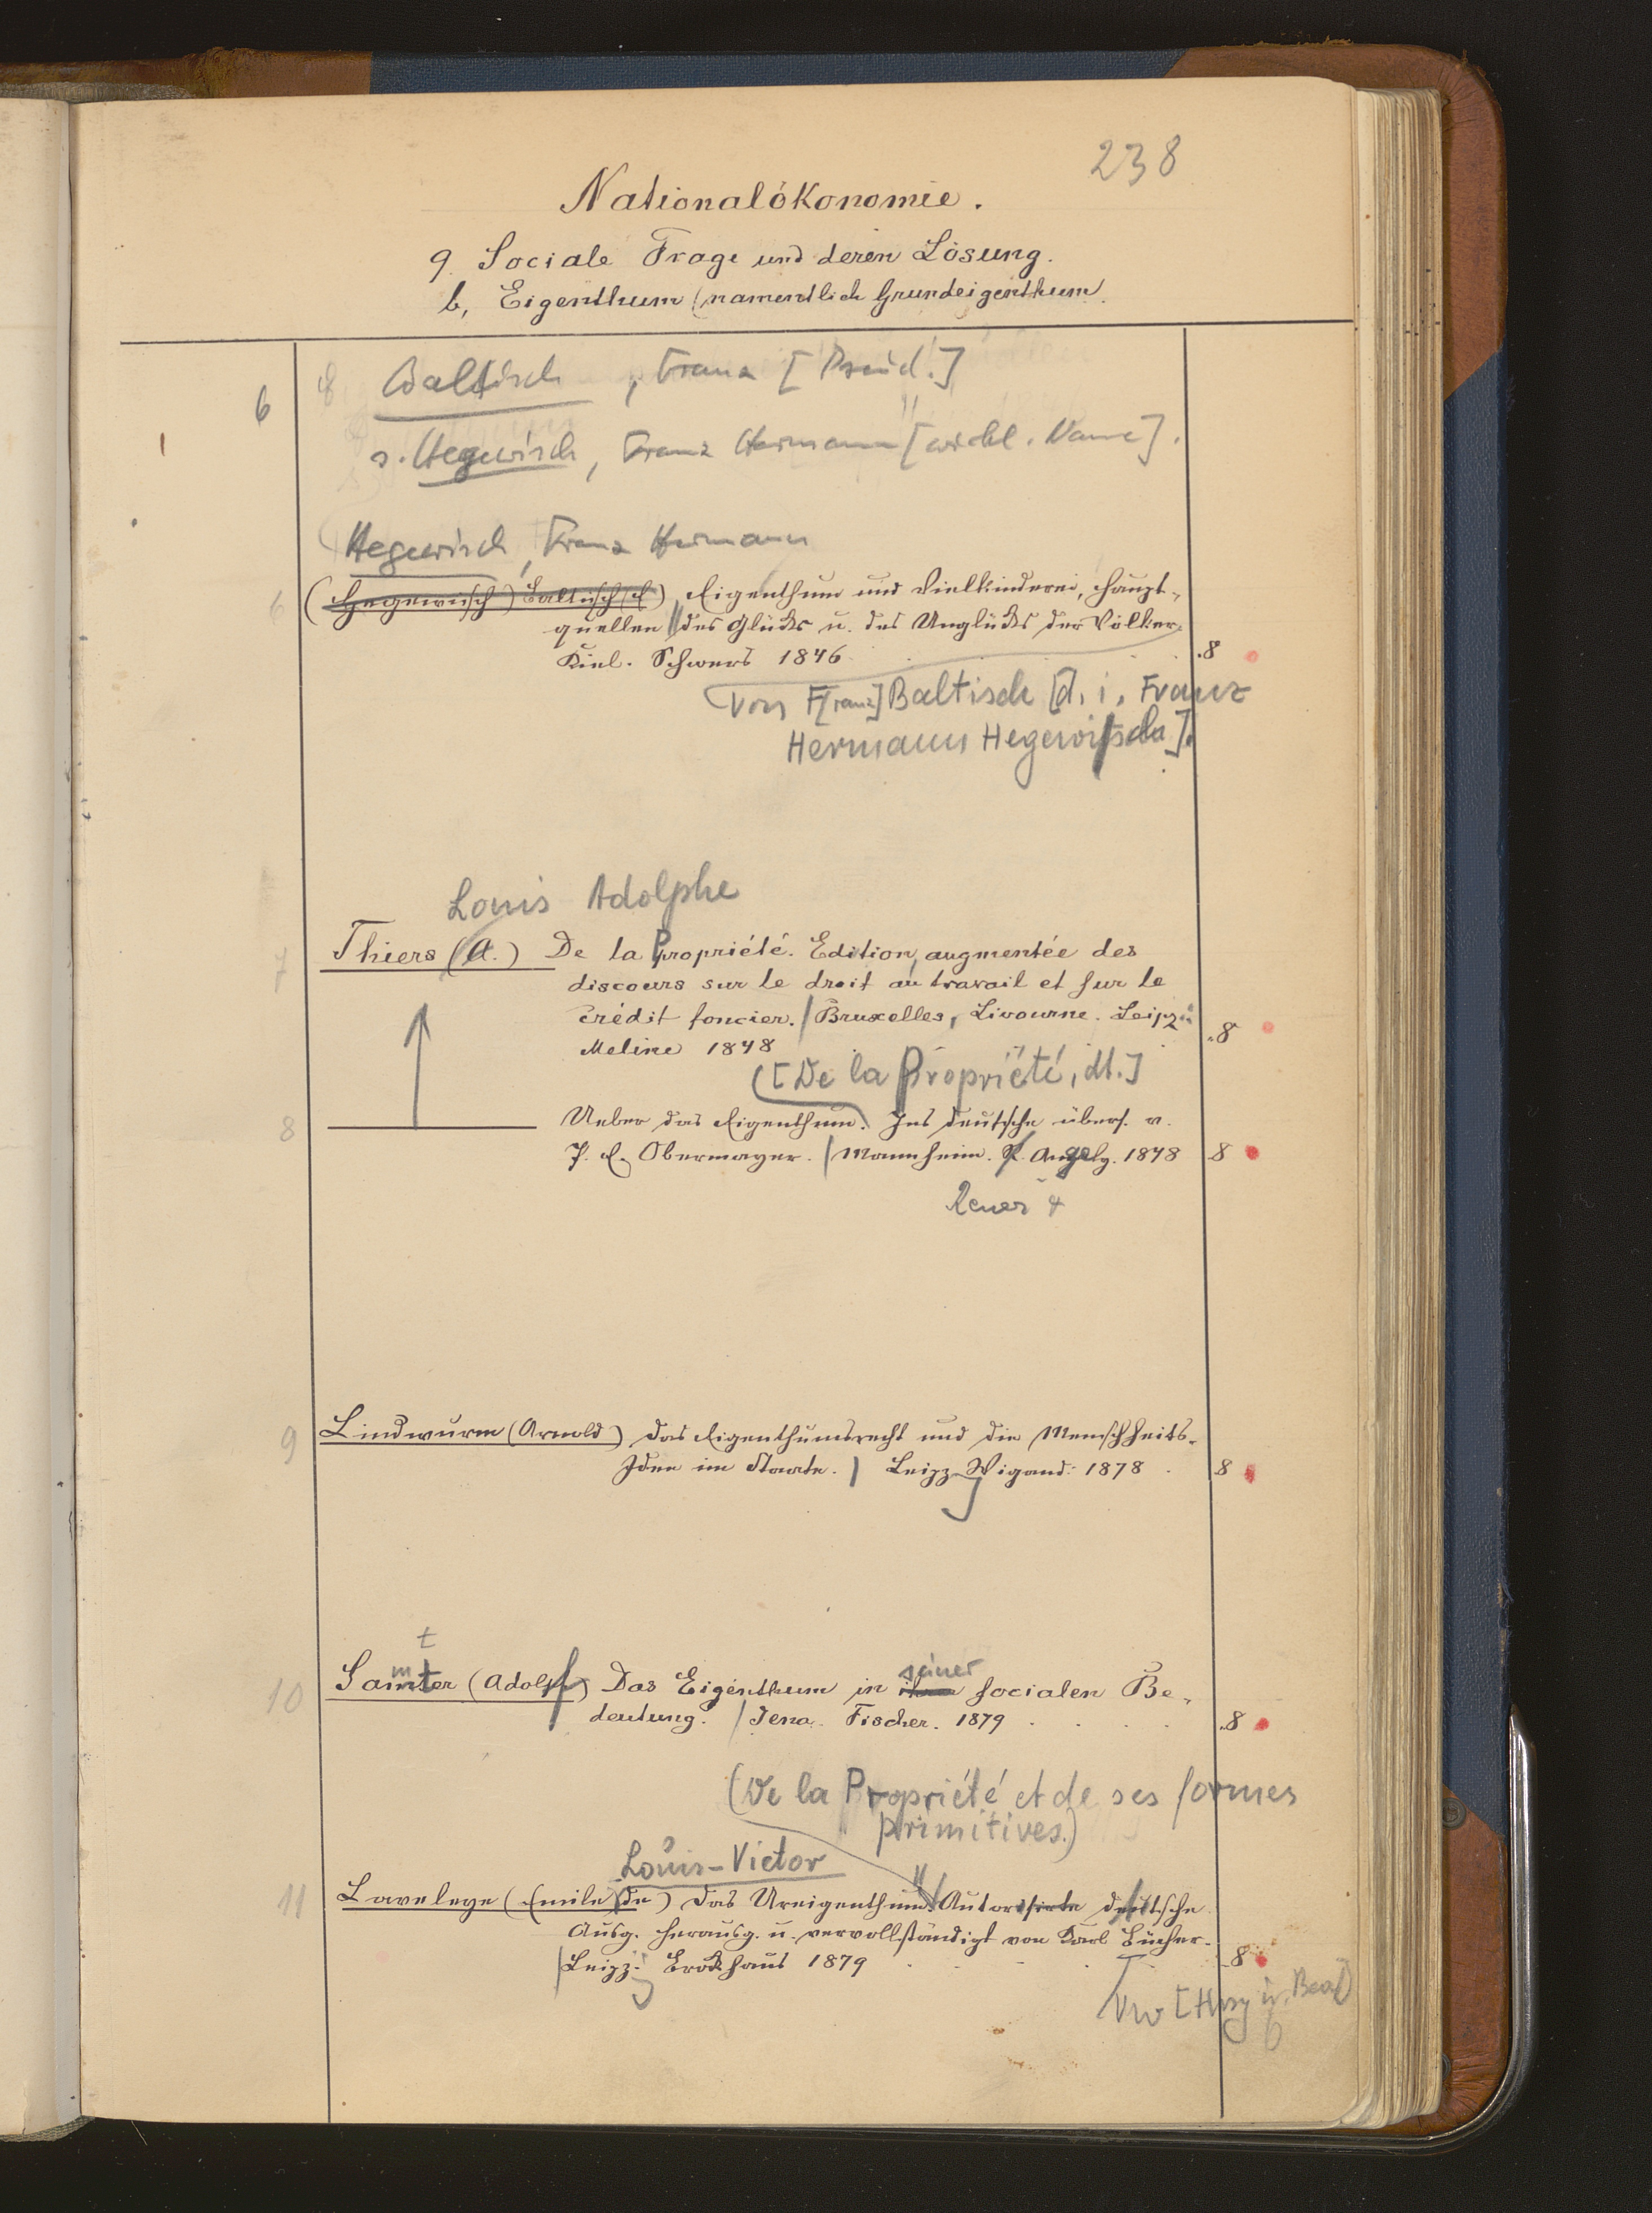 238
Nationalökonomie.
9. Sociale Frage und deren Lösung.
b, Eigenthum (namentlich Grundeigenthum.
6 Baltisch, Franz [Pseud.]
s. Hegewisch, Franz Hermann [wirkl. Name].
Hegewisch, Franz Hermann
6 (Hegewisch) Baltisch (F.) Eigenthum und Vielkinderei, Haupt-
quellen des Glücks u. des Unglücks der Völker.
Kiel. Schwers 1846 .8
von F[ranz] Baltisch [d. i. Franz
Hermann Hegewisch].
Louis Adolphe
7 Thiers (A.) De la Propriété. Edition augmentée des
discours sur le droit au travail et sur le
crédit foncier. / Bruxelles, Livourne. Leipz:
Meline 1848 .8
([De la Propriété, dt.]
8 Ueber das Eigenthum. Ins deutsche übers. v.
P. E. Obermayer. / Mannheim. 1848 8
9 Lindwurm (Arnold) Das Eigenthumsrecht und die Menschheits-
Idee im Staate. / Leipz. Wigand. 1878 . 8
t
10 Samter (Adolf) Das Eigenthum in ihrer seiner socialen Be-
deutung. / Jena. Fischer. 1879 . . . . .8
(De la Propriété et de ses formes
primitives.)
Louis-Victor
11 Laveleye (Emile de) Das Ureigenthum. Autorisirte deutsche
Ausg. herausg. u. vervollständigt von Karl Bücher.
/ Leipz. Brockhaus 1879 . . . . 8